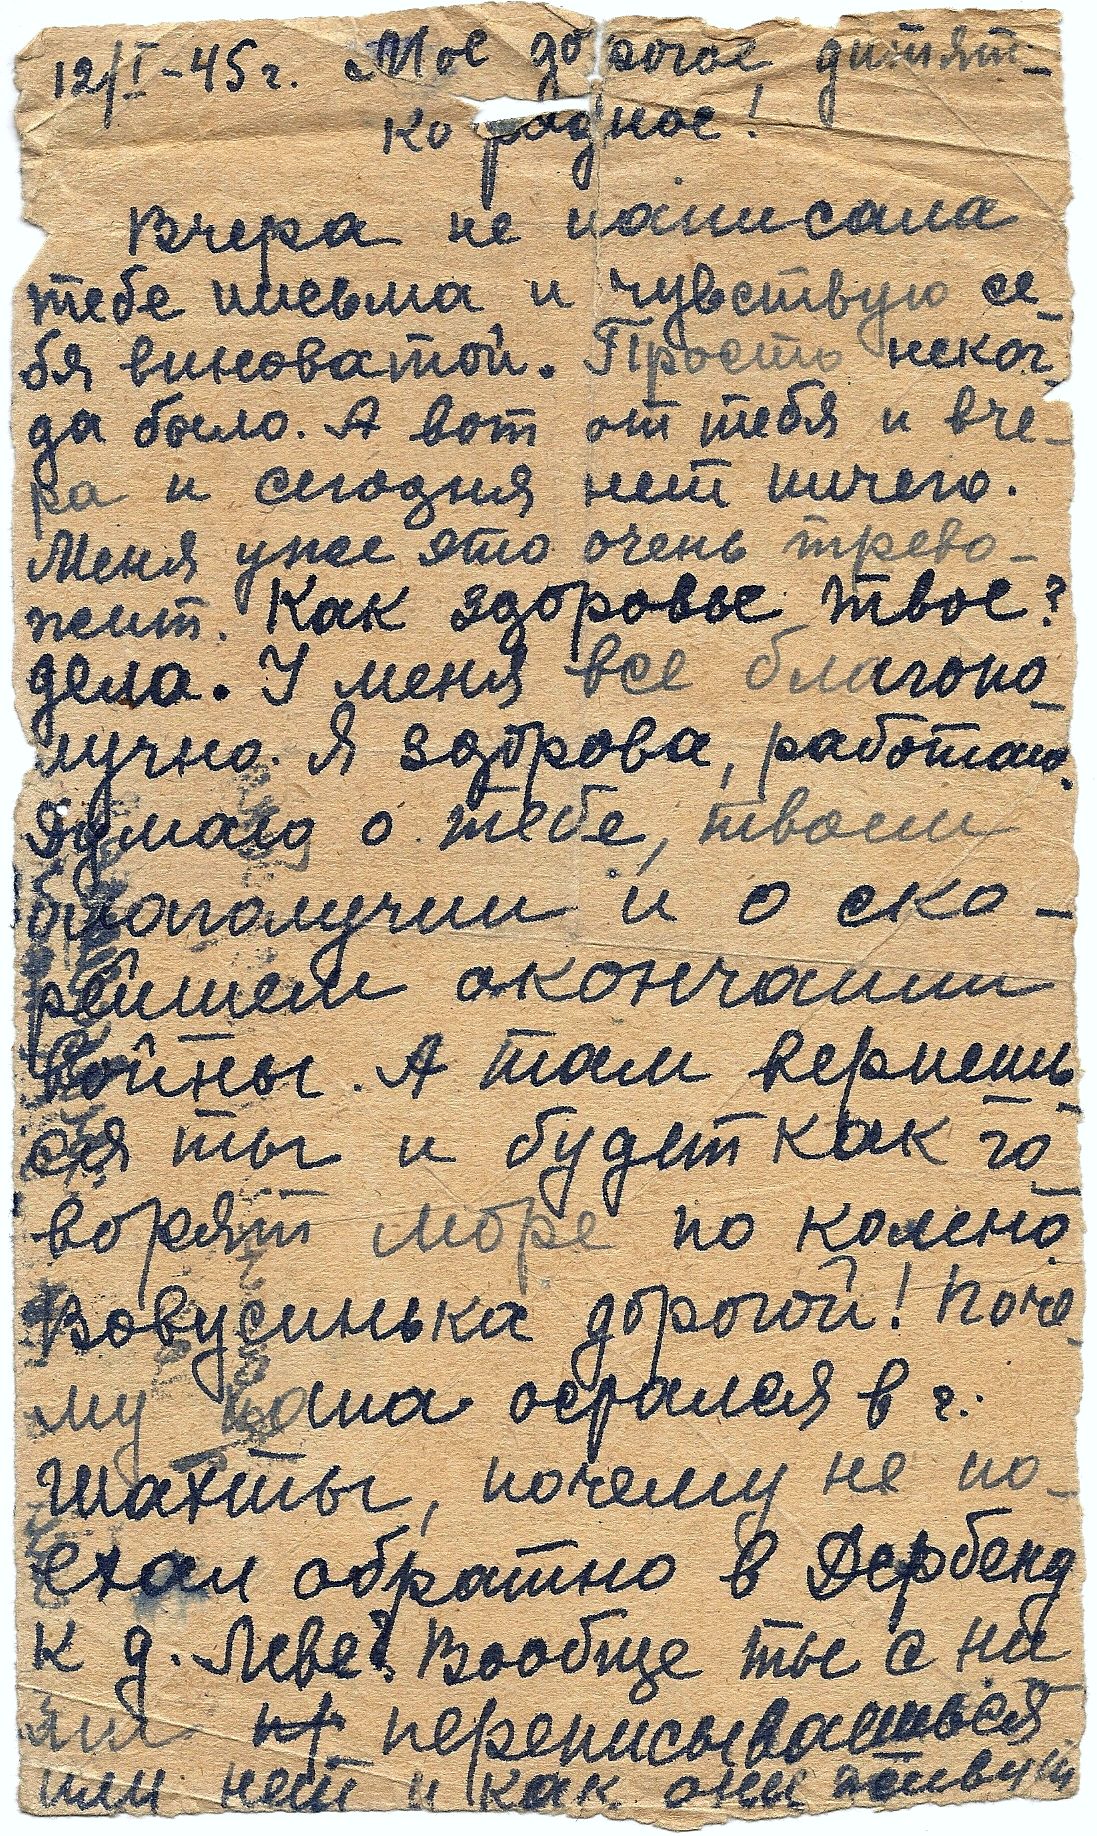 12/I-45г. Мое дорогое дитят-
ко родное!
Вчера не написала
тебе письма и чувствую се-
бя виноватой. Просто неког-
да было. А вот от тебя и вче-
ра и сегодня нет ничего.
Меня уже это очень трево-
жит. Как здоровье твое?
дела. У меня все благопо-
лучно. Я здорова, работаю.
Думаю о тебе, твоем
благополучии и о ско-
рейшем окончании
войны. А там вернешь-
ся ты и будет как го-
ворят море по колено.
Вовусинька дорогой! Поче-
му папа остался в г.
Шахты, почему не по-
ехал обратно в Дербенд
к д. Леве? Вообще ты с ни-
ми переписываешься
или нет и как они живут